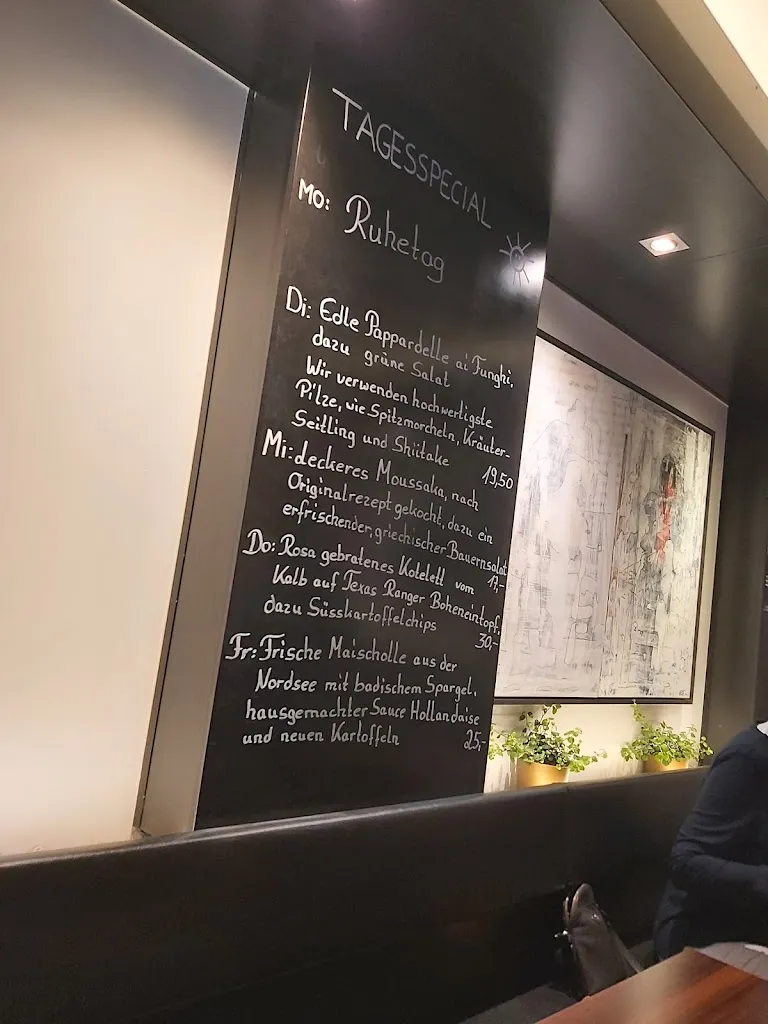 TAGESSPECIAL
MO: Ruhetag
Di: Edle Pappardelle ai Funghi,
dazu grüne Salat
Wir verwenden hochwertigste
Pilze, wie Spitzmorcheln, Kräuter-
Seitling und Shiitake 19,50
Mi: deckeres Moussaka, nach
Originalrezept gekocht, dazu ein
erfrischender, griechischer Bauernsalat
17,-
Do: Rosa gebratenes Kotelett vom
Kalb auf Texas Ranger Boheneintopf,
dazu Süsskartoffelchips 30,-
Fr: Frische Maischolle aus der
Nordsee mit badischem Spargel,
hausgemachter Sauce Hollandaise
und neuen Kartoffeln 25,-